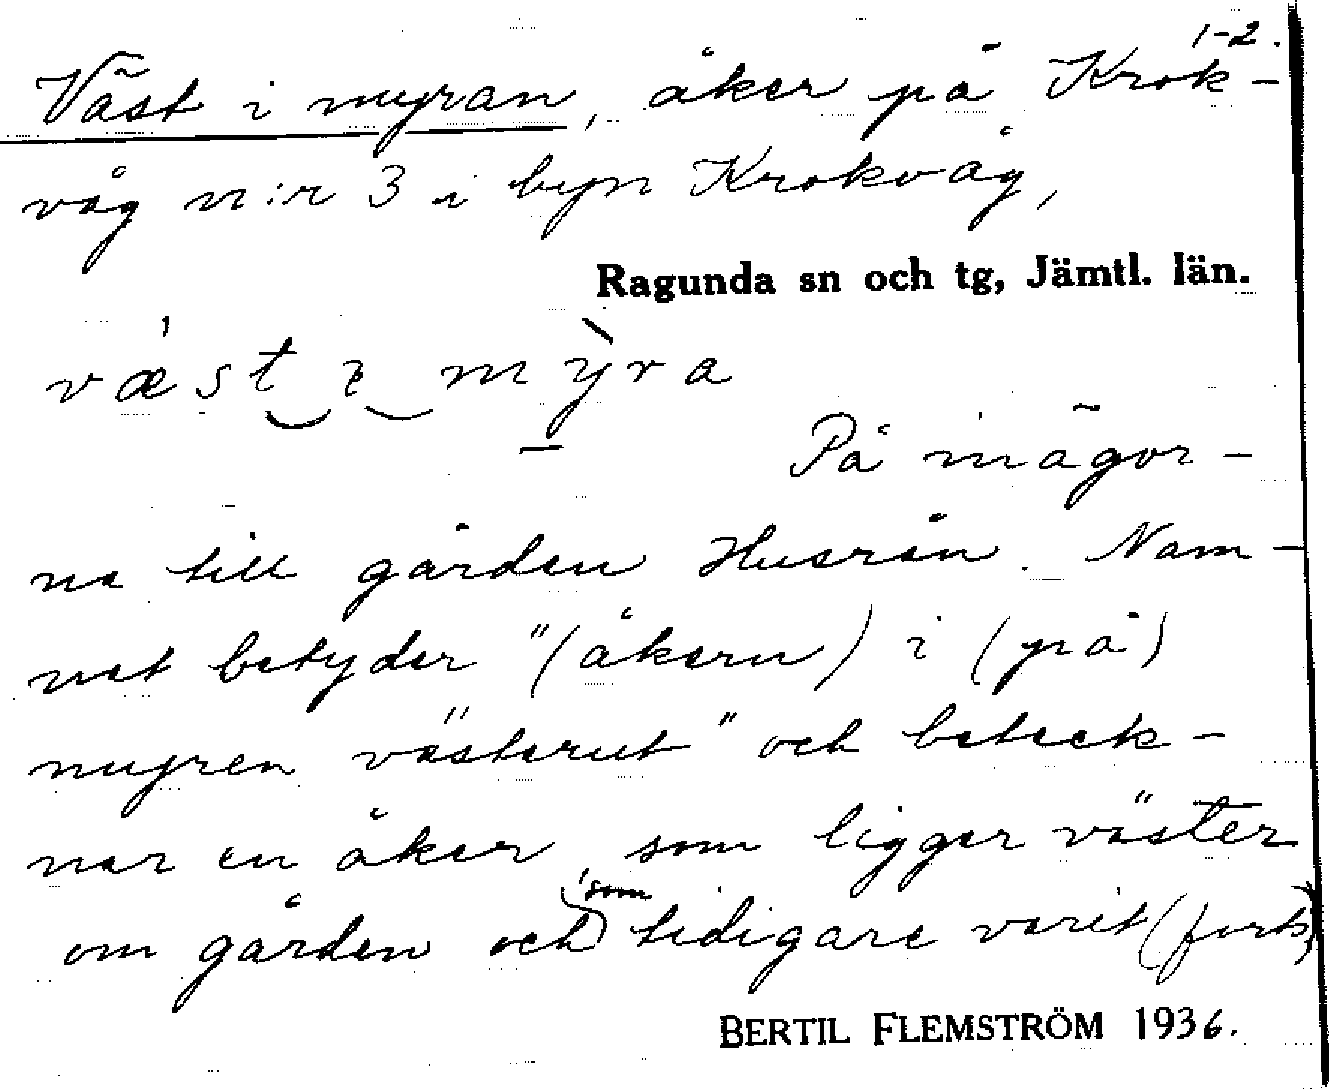 1-2.
Väst i myran, åker på Krok-
våg n:r 3 i byn Krokvåg,
Ragunda sn och tg, Jämtl. län.
væst ɩ mỳra
På inägor-
na till gården Husrån. Nam-
net betyder "(åkern) i (på)
myren västerut" och beteck-
nar en åker, som ligger väster
om gården och som tidigare varit (forts)
BERTIL FLEMSTRÖM 1936.